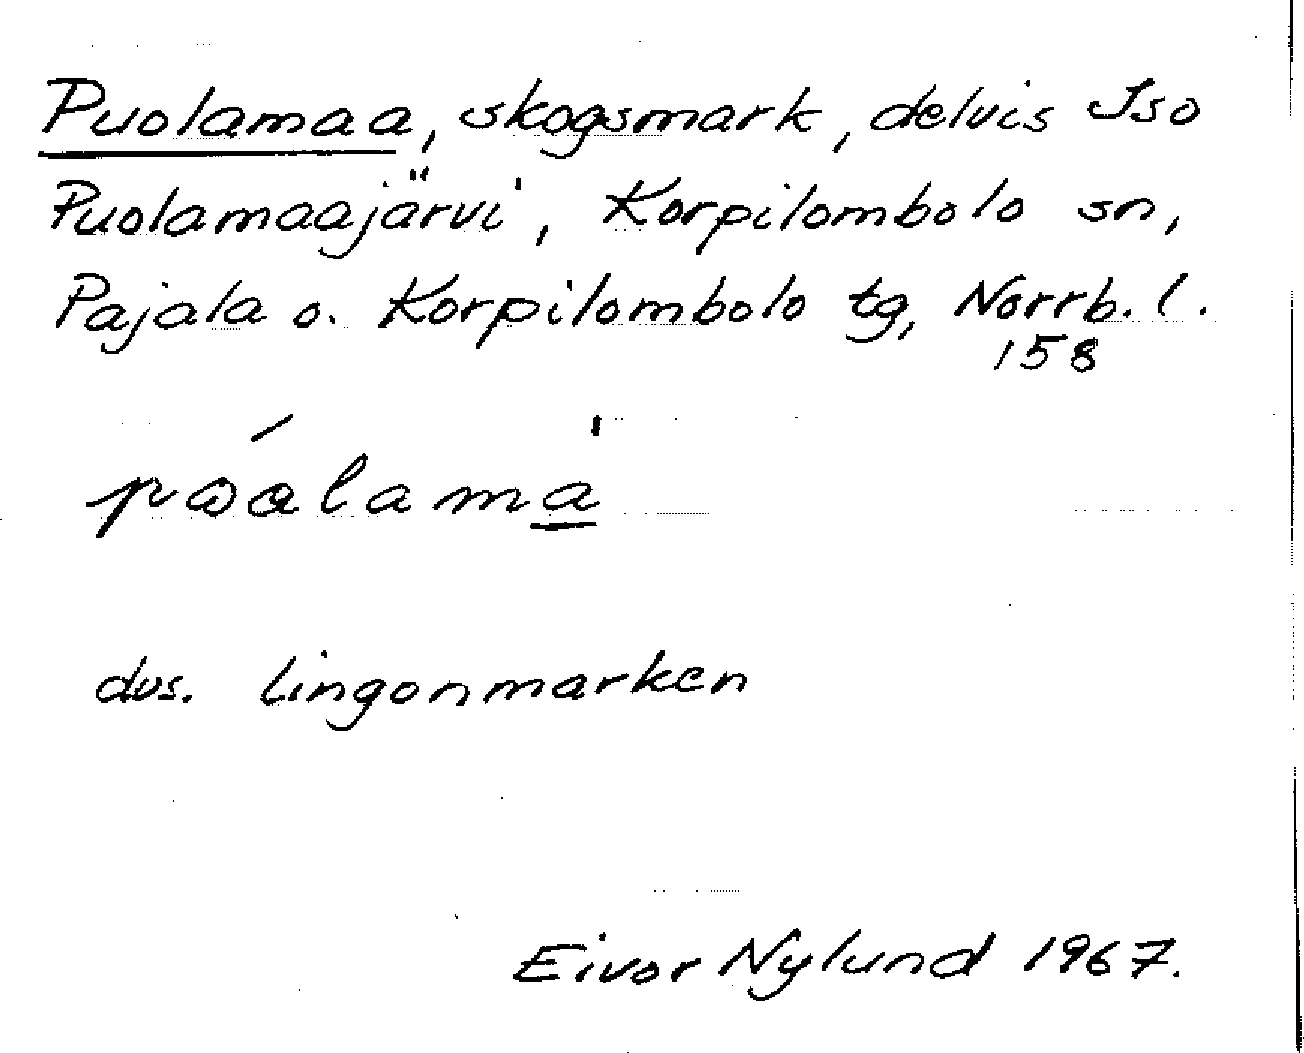 Puolamaa, skogsmark, delvis Iso
Puolamaajärvi, Korpilombolo sn,
Pajala o. Korpilombolo tg, Norrb. l.
158
dvs. lingonmarken
Eivor Nylund 1967.